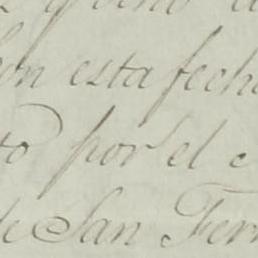 con esta fech
to por el
de San Fer